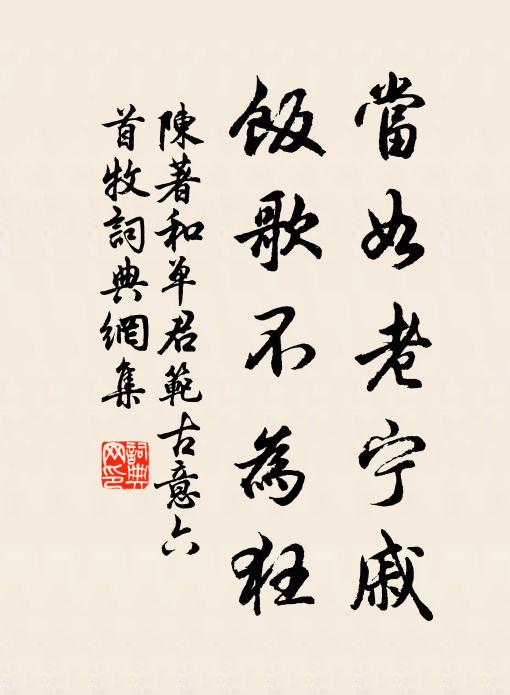 當如老宁戚
飯歌不為狂
陳著和单君範古意六
首牧詞典網集
詞典網印